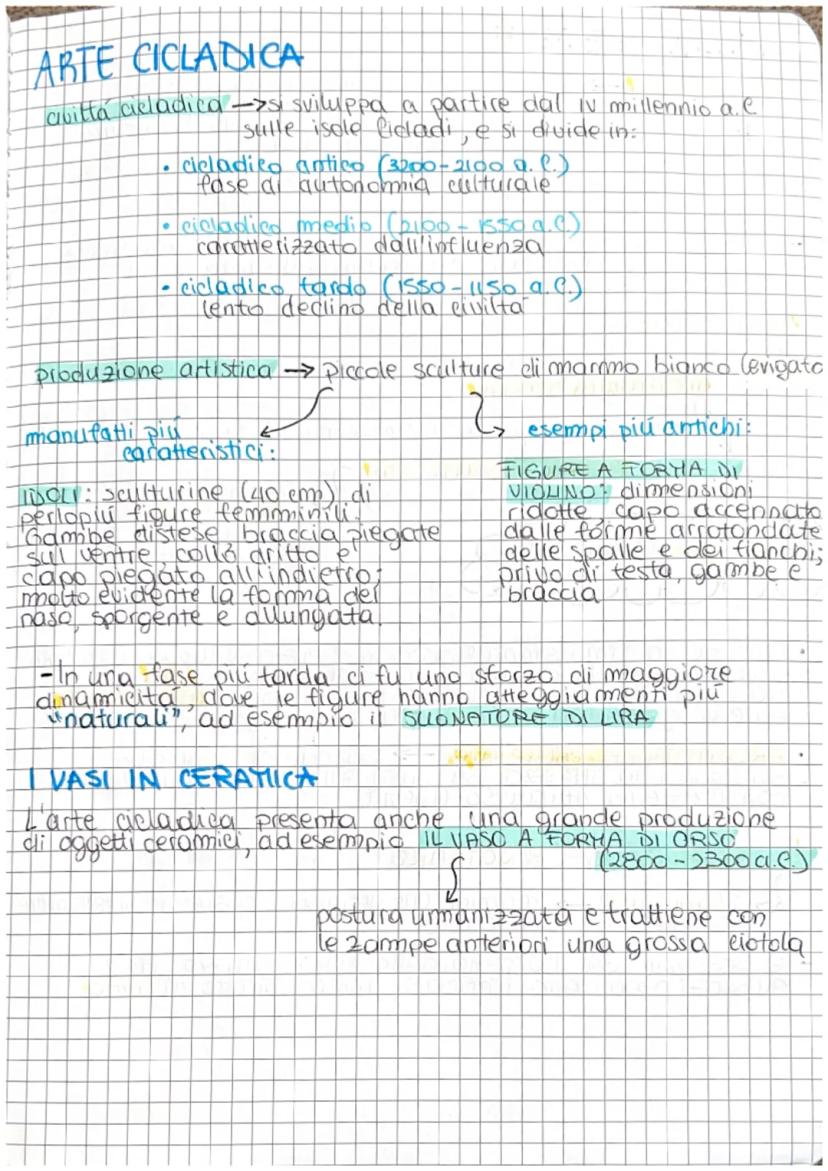 ARTE CICLADICA
civiltá cicladica -> si sviluppa a partire dal IV millennio a.C
sulle isole Cicladi, e si divide in:
• cicladico antico (3200-2100 a.C.)
fase di autonomia culturale
• cicladico medio (2100-1550 a.C)
caratterizzato dall'influenza
• cicladico tardo (1550-1150 a.C.)
lento declino della civiltà
produzione artistica -> piccole sculture di marmo bianco levigato
manufatti piú
caratteristici:
IDOLI: sculturine (40 cm) di
perlopiú figure femminili.
Gambe distese, braccia piegate
sul ventre, collo dritto e
capo piegato all'indietro;
molto evidente la forma del
naso, sporgente e allungata.
esempi piú antichi:
FIGURE A FORMA DI
VIOLINO: dimensioni
ridotte, capo accennato
dalle forme arrotondate
delle spalle e dei fianchi;
privo di testa, gambe e
braccia
-In una fase piú tarda ci fu uno sforzo di maggiore
dinamicitá, dove le figure hanno atteggiamenti piú
"naturali", ad esempio il SUONATORE DI LIRA
I VASI IN CERAMICA
L'arte cicladica presenta anche una grande produzione
di oggetti ceramici, ad esempio IL VASO A FORMA DI ORSO
(2800-2300 a.C.)
postura umanizzata e trattiene con
le zampe anteriori una grossa ciotola